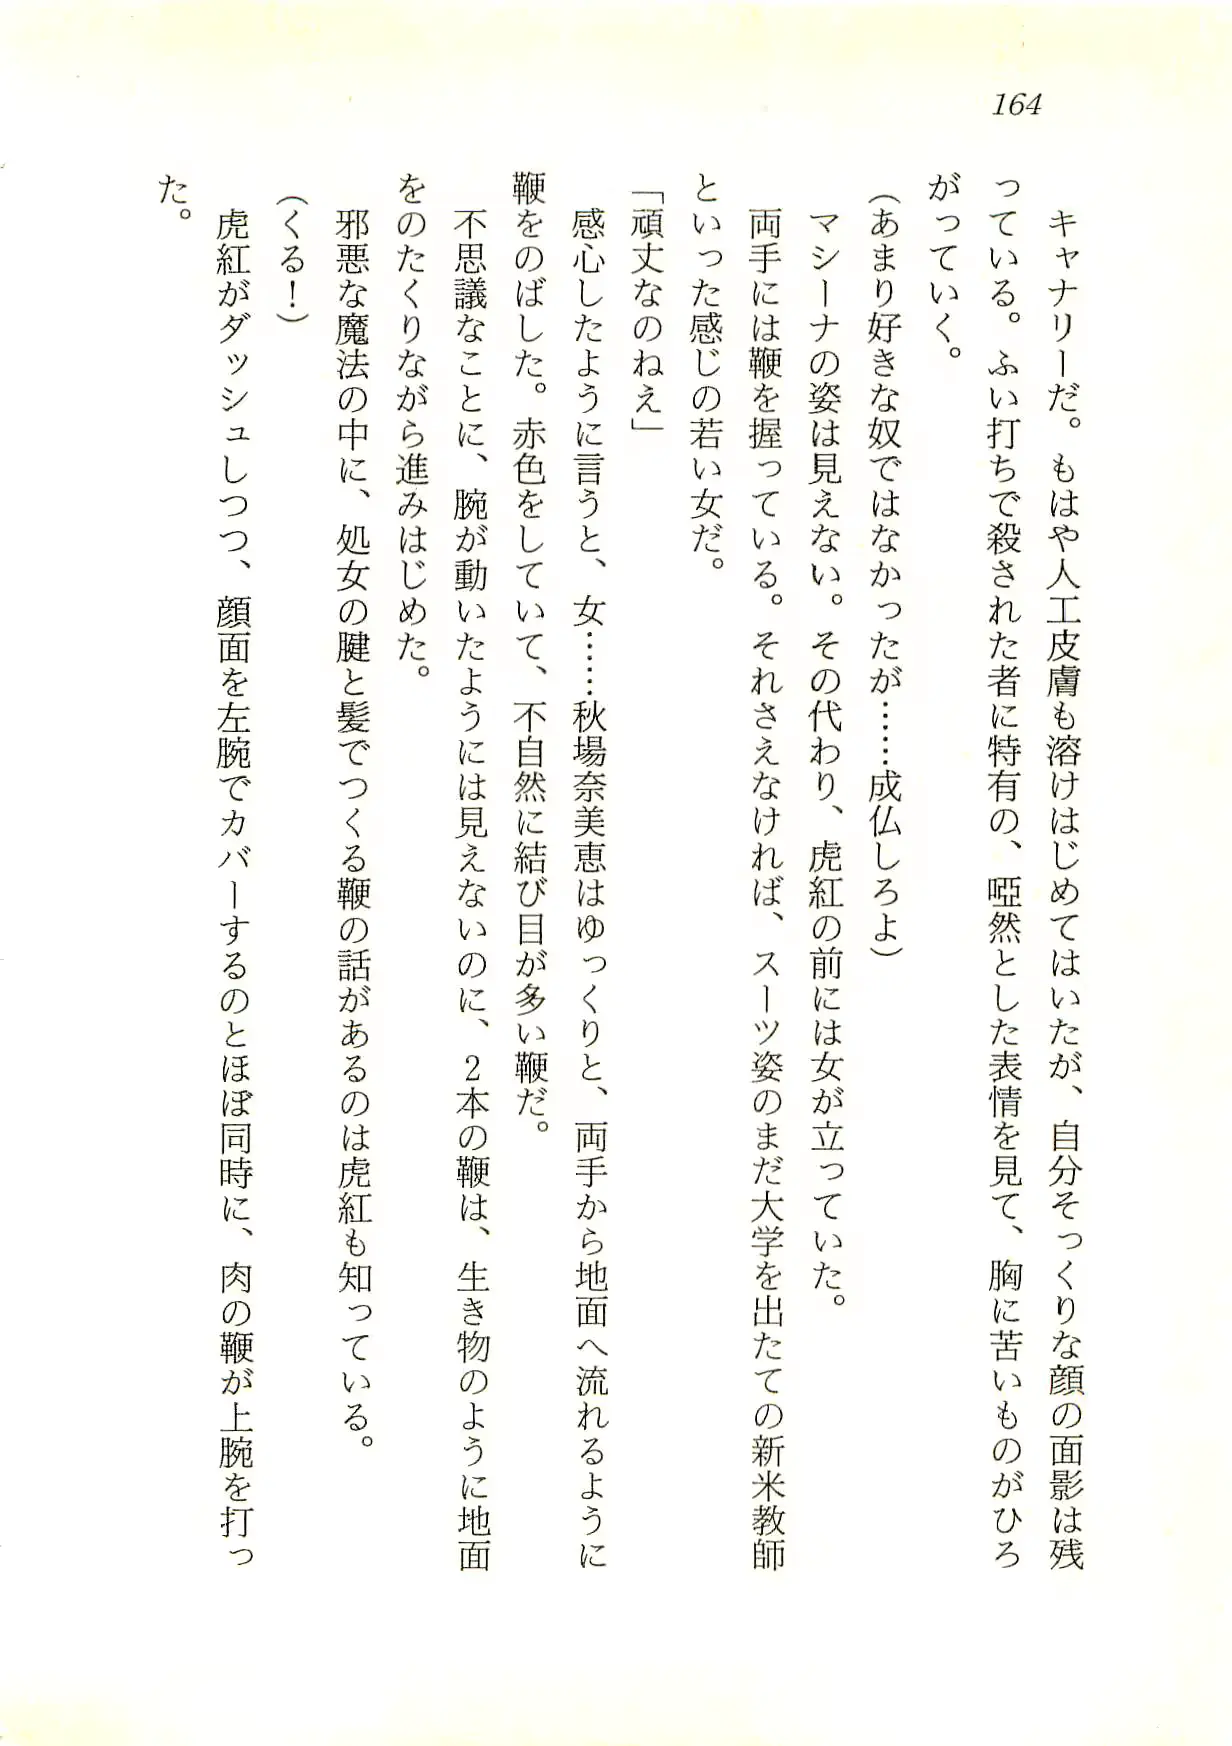 164
　キャナリーだ。もはや人工皮膚も溶けはじめてはいたが、自分そっくりな顔の面影は残
っている。ふい打ちで殺された者に特有の、啞然とした表情を見て、胸に苦いものがひろ
がっていく。
（あまり好きな奴ではなかったが……成仏しろよ）
　マシーナの姿は見えない。その代わり、虎紅の前には女が立っていた。
　両手には鞭を握っている。それさえなければ、スーツ姿のまだ大学を出たての新米教師
といった感じの若い女だ。
「頑丈なのねえ」
　感心したように言うと、女……秋場奈美恵はゆっくりと、両手から地面へ流れるように
鞭をのばした。赤色をしていて、不自然に結び目が多い鞭だ。
　不思議なことに、腕が動いたようには見えないのに、2本の鞭は、生き物のように地面
をのたくりながら進みはじめた。
　邪悪な魔法の中に、処女の腱と髪でつくる鞭の話があるのは虎紅も知っている。
（くる！）
　虎紅がダッシュしつつ、顔面を左腕でカバーするのとほぼ同時に、肉の鞭が上腕を打っ
た。